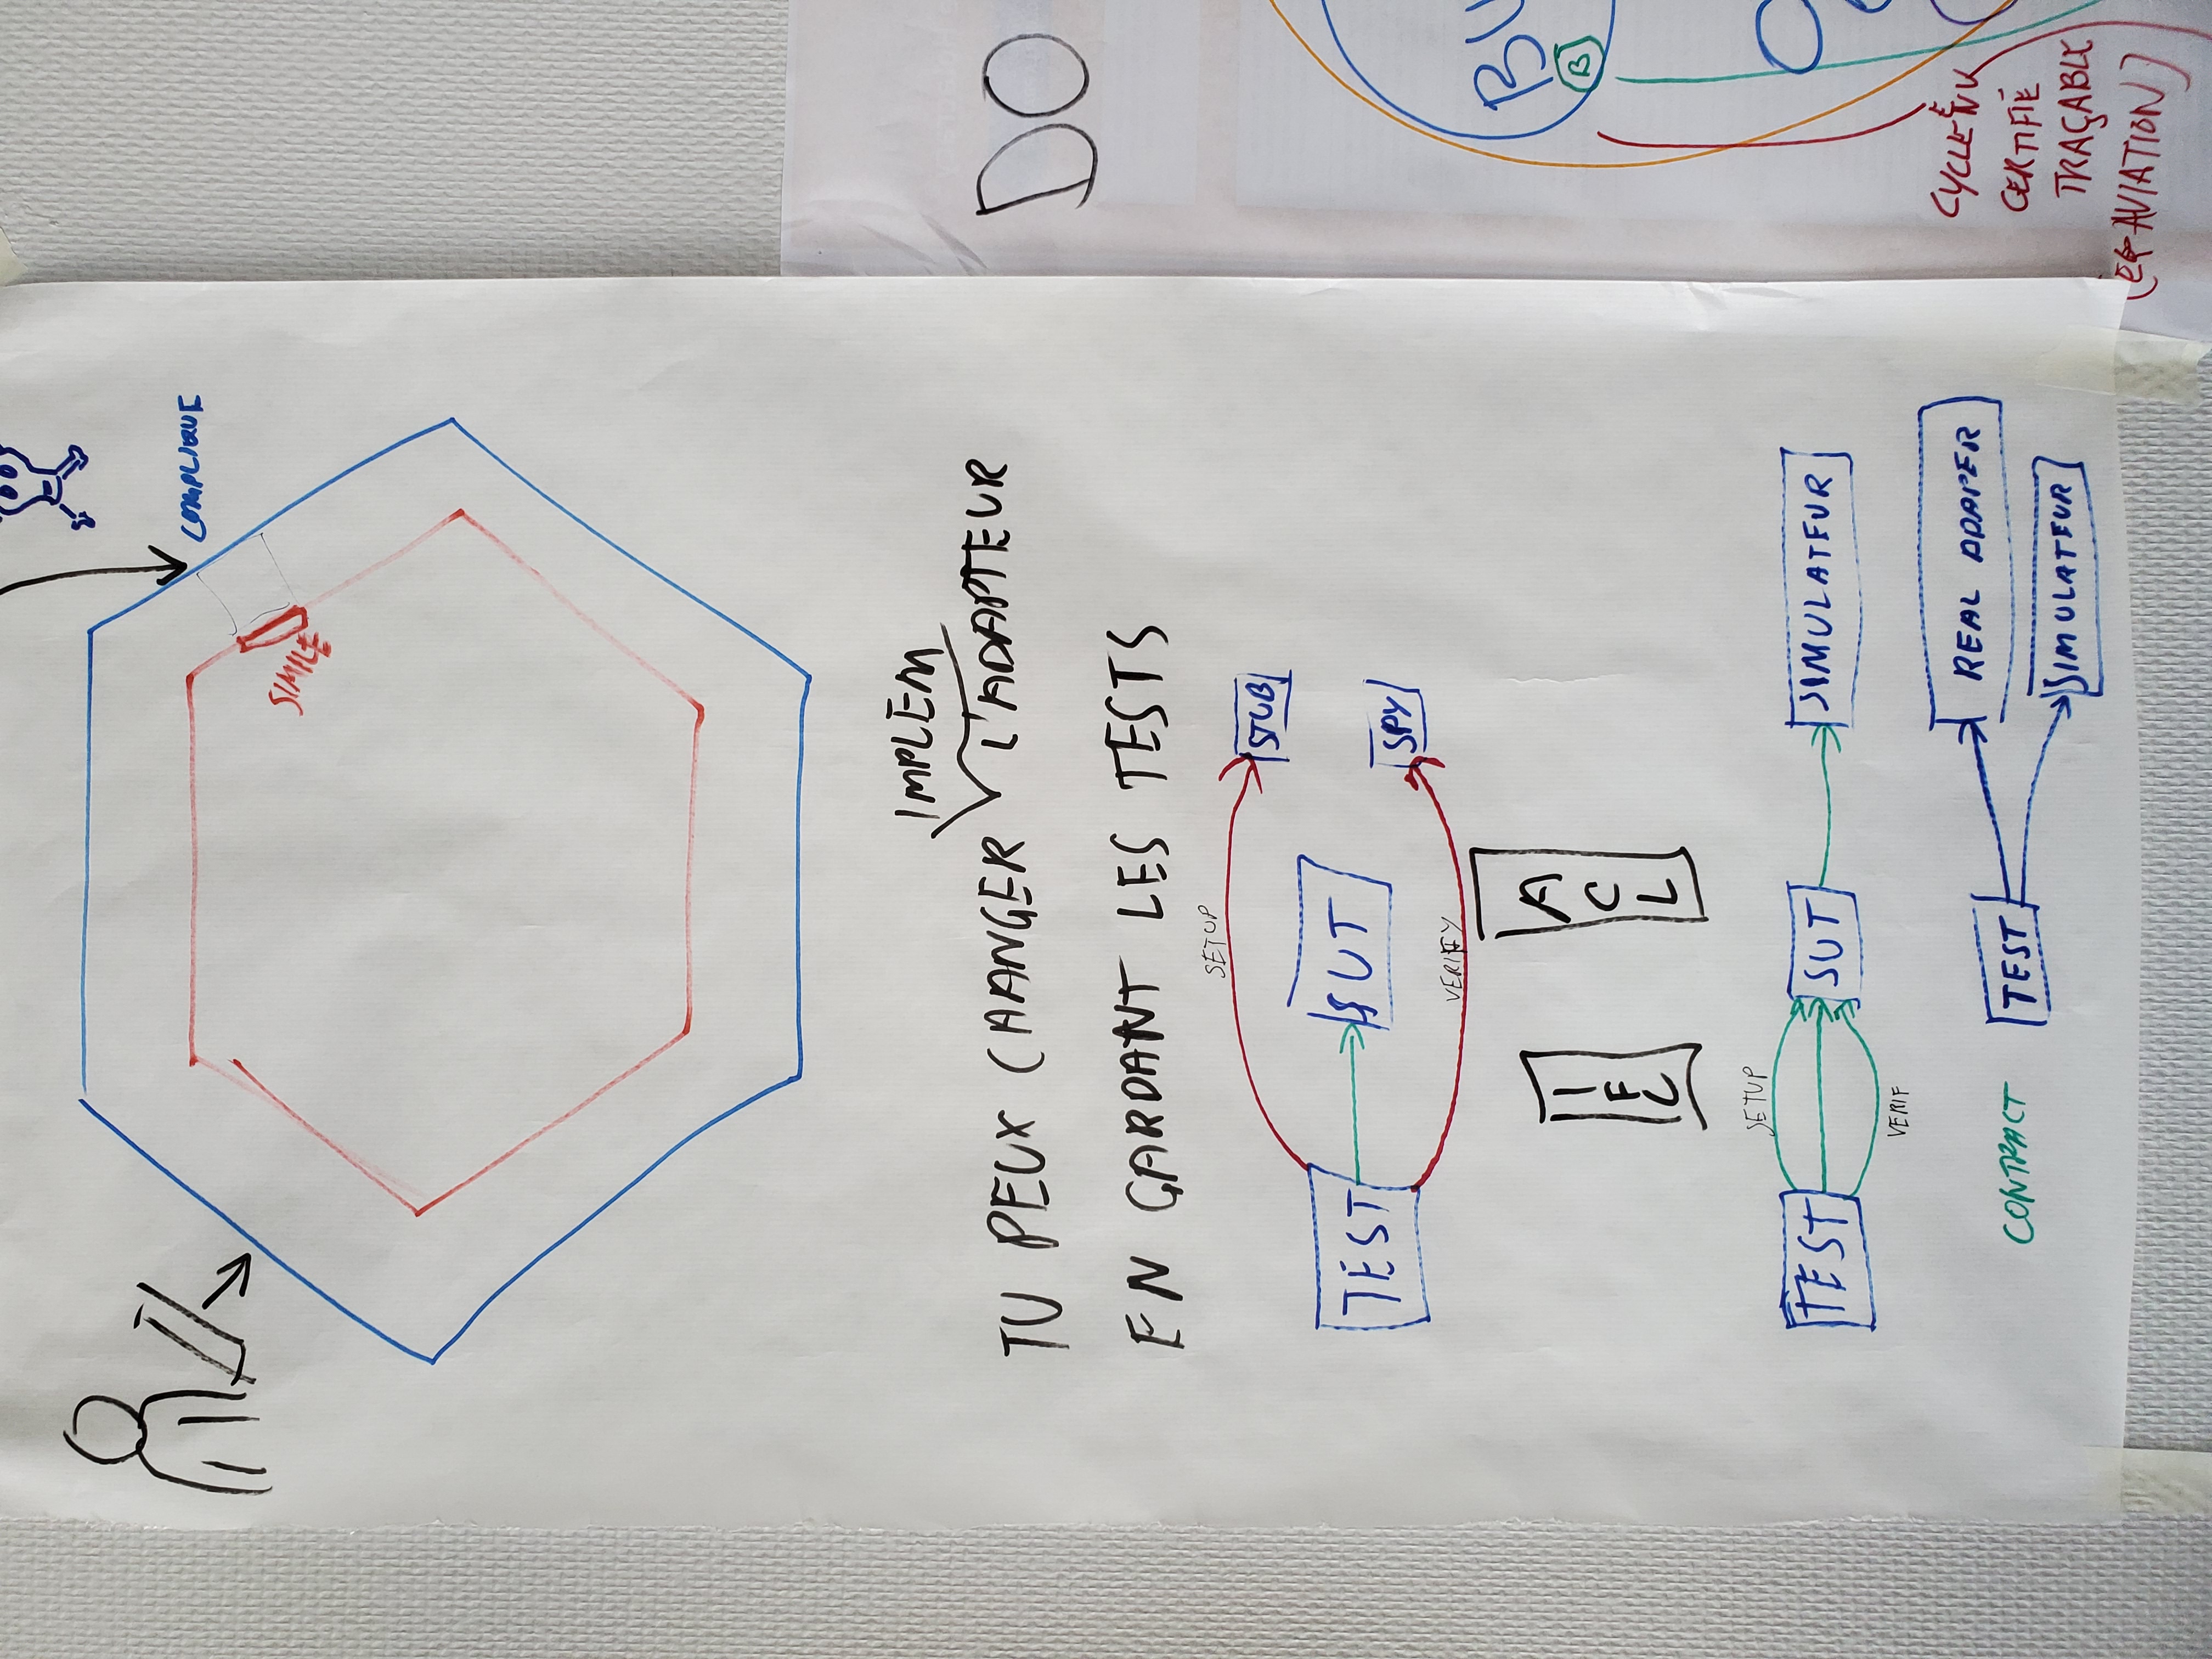 COMPLIQUE
SIMPLE
IMPLEM
TU PEUX CHANGER L'ADAPTEUR
EN GARDANT LES TESTS
SETUP
STUB
TEST
SUT
SPY
VERIFY
IFC
ACL
SETUP
TEST
SUT
SIMULATEUR
VERIF
REAL ADAPER
CONTRACT
TEST
SIMULATEUR
DO
BU
B
CERTIFIÉ
TRAÇABLE
AVIATION)